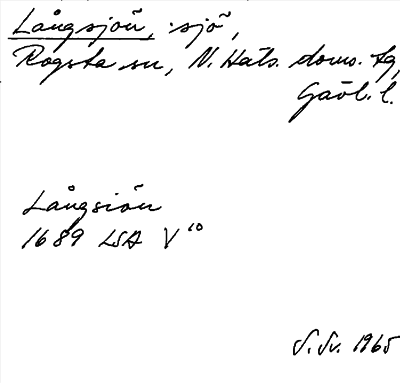 Långsjön, sjö,
Rogsta sn, N. Häls. doms. tg,
Gävl. l.
Långsiön
1689 LSA V¹⁰
S. Sv. 1965